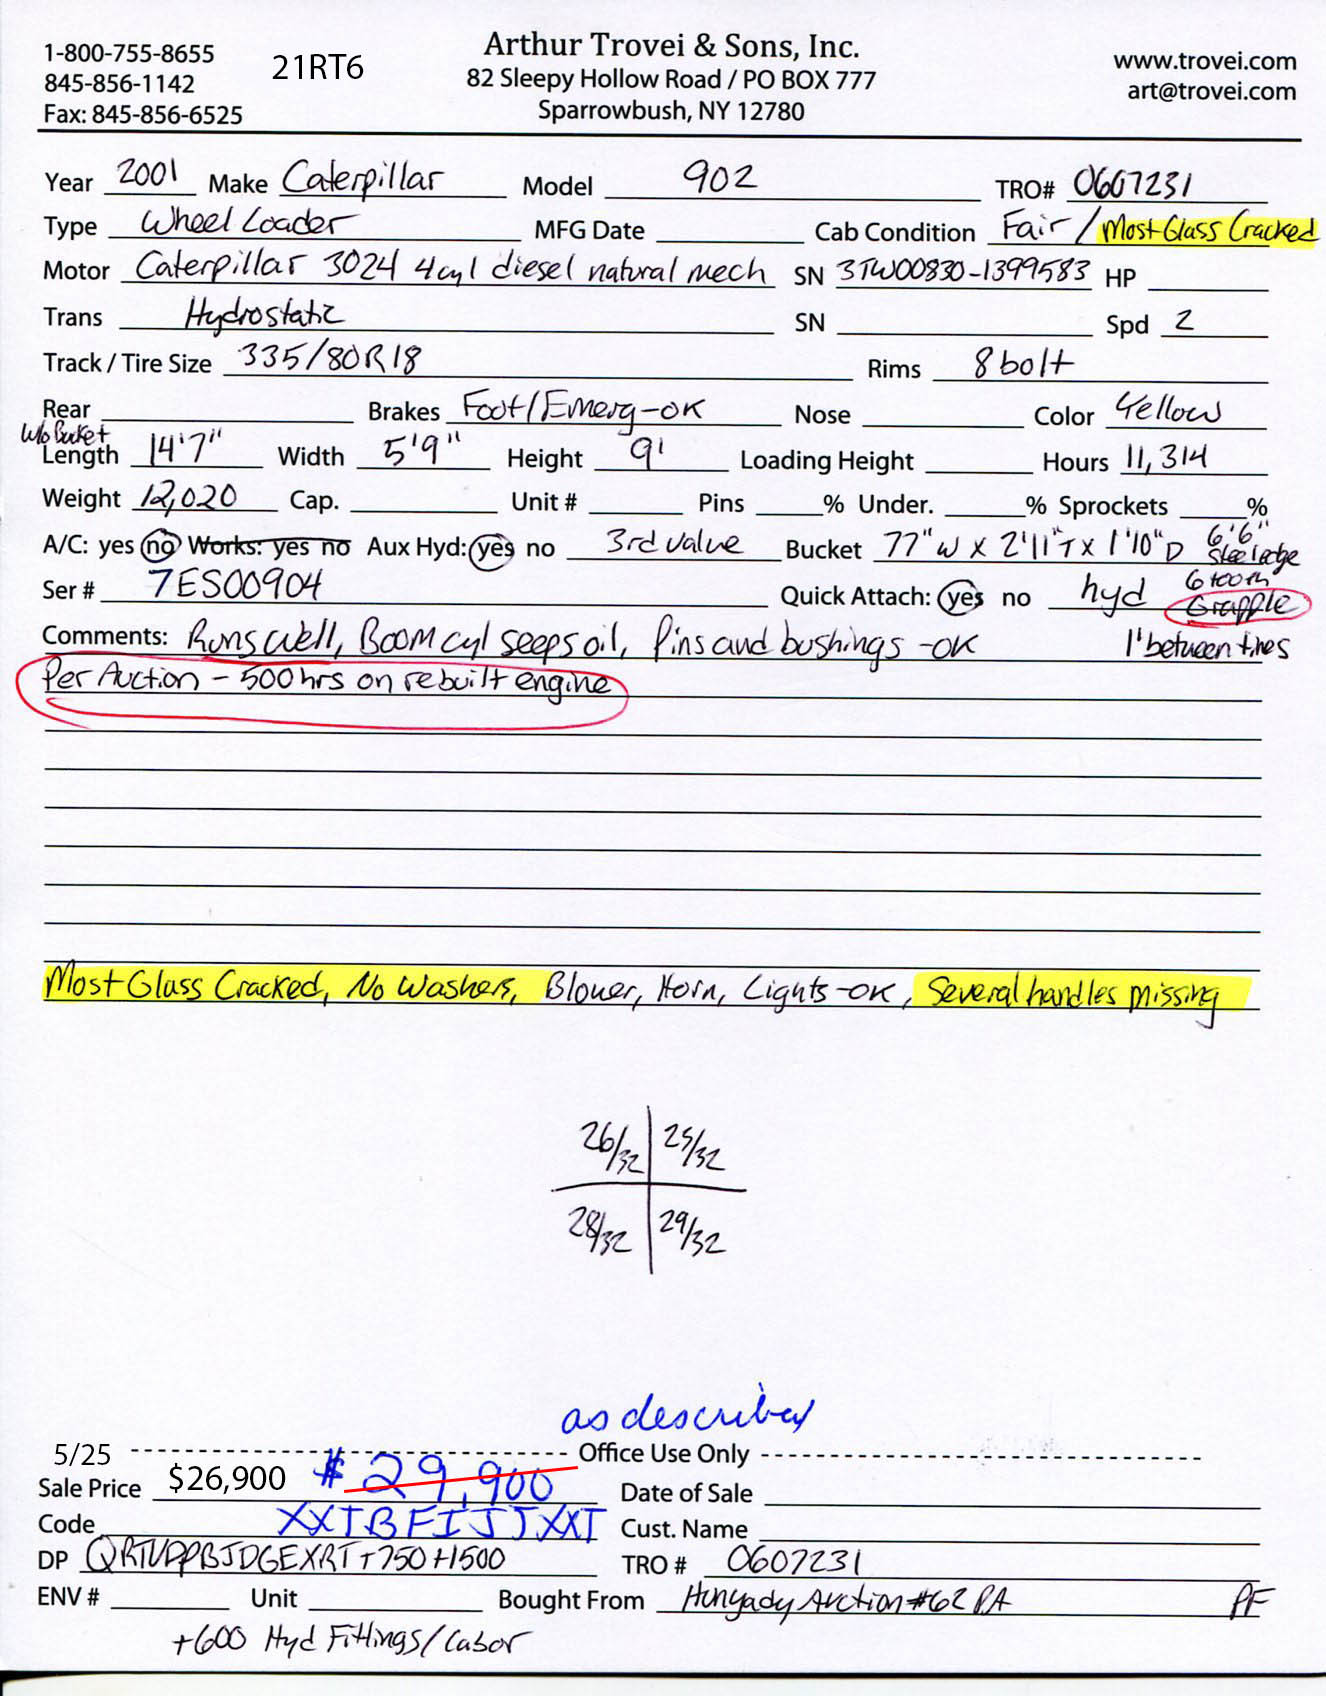 1-800-755-8655 21RT6 Arthur Trovei & Sons, Inc. www.trovei.com
845-856-1142 82 Sleepy Hollow Road / PO BOX 777 art@trovei.com
Fax: 845-856-6525 Sparrowbush, NY 12780
Year 2001 Make Caterpillar Model 902 TRO# 0607231
Type Wheel Loader MFG Date Cab Condition Fair / Most Glass Cracked
Motor Caterpillar 3024 4cyl diesel natural mech SN 3TW00830-1399583 HP
Trans Hydrostatic SN Spd 2
Track / Tire Size 335/80R18 Rims 8 bolt
Rear Brakes Foot/Emerg-OK Nose Color Yellow
w/o Bucket
Length 14'7" Width 5'9" Height 9' Loading Height Hours 11,314
Weight 12,020 Cap. Unit # Pins % Under. % Sprockets %
A/C: yes no Works: yes no Aux Hyd: yes no 3rd value Bucket 77" W X 2'11" T X 1'10" D 6'6" steel edge
Ser # 7ES00904 Quick Attach: yes no hyd 6 tooth Grapple
Comments: Runs well, Boom cyl seeps oil, Pins and bushings -OK 1' between tines
Per Auction - 500 hrs on rebuilt engine
Most Glass Cracked, No Washers, Blower, Horn, Lights -OK, Several handles missing
26/32 25/32
28/32 29/32
as described
5/25 Office Use Only
Sale Price $26,900 $29,900 Date of Sale
Code XXTBFIJJXXT Cust. Name
DP QRTVPPBJDGEXRT+750+1500 TRO # 0607231
ENV # Unit Bought From Hunyady Auction #62 PA PF
+600 Hyd Fittings/Labor